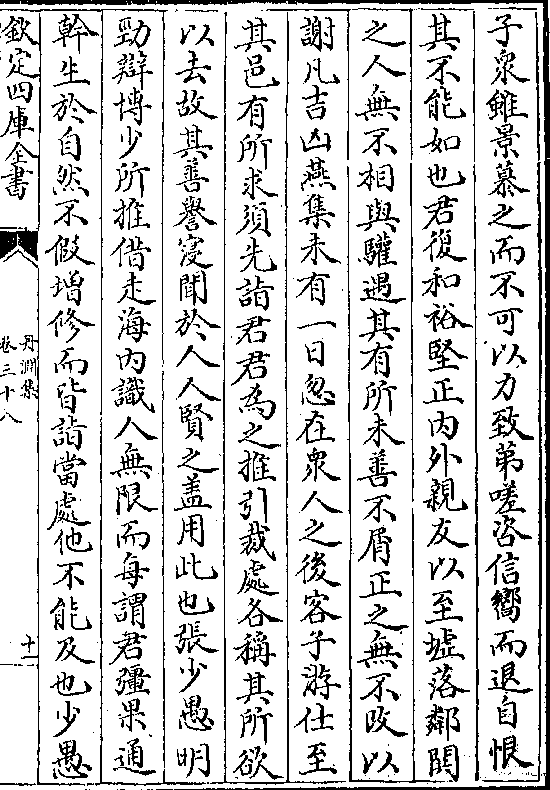 子衆雖景慕之而不可以力致弟嗟咨信嚮而退自恨
其不能如也君復和裕堅正内外親友以至墟落鄰閭
之人無不相與驩遇其有所未善不屑正之無不改以
謝凡吉凶燕集未有一日忽在衆人之後客子游仕至
其邑有所求須先詣君君為之推引裁處各稱其所欲
以去故其善譽寖聞於人人賢之盖用此也張少愚明
勁辯博少所推借走海内識人無限而每謂君彊果通
幹生於自然不假増修而皆詣當處他不能及也少愚
欽定四庫全書
丹淵集
卷三十八
十一